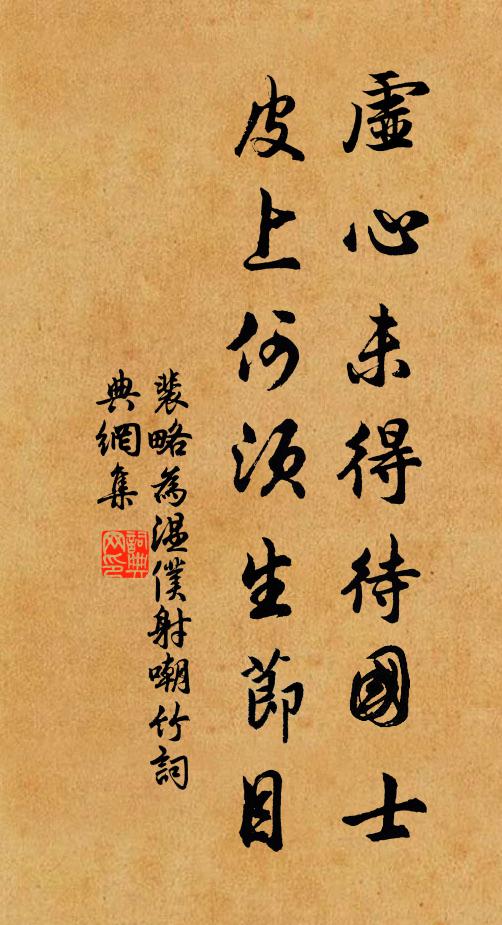 虛心未得待國士
皮上何須生節目
裴略為温僕射嘲竹詞
典網集
詞典網印